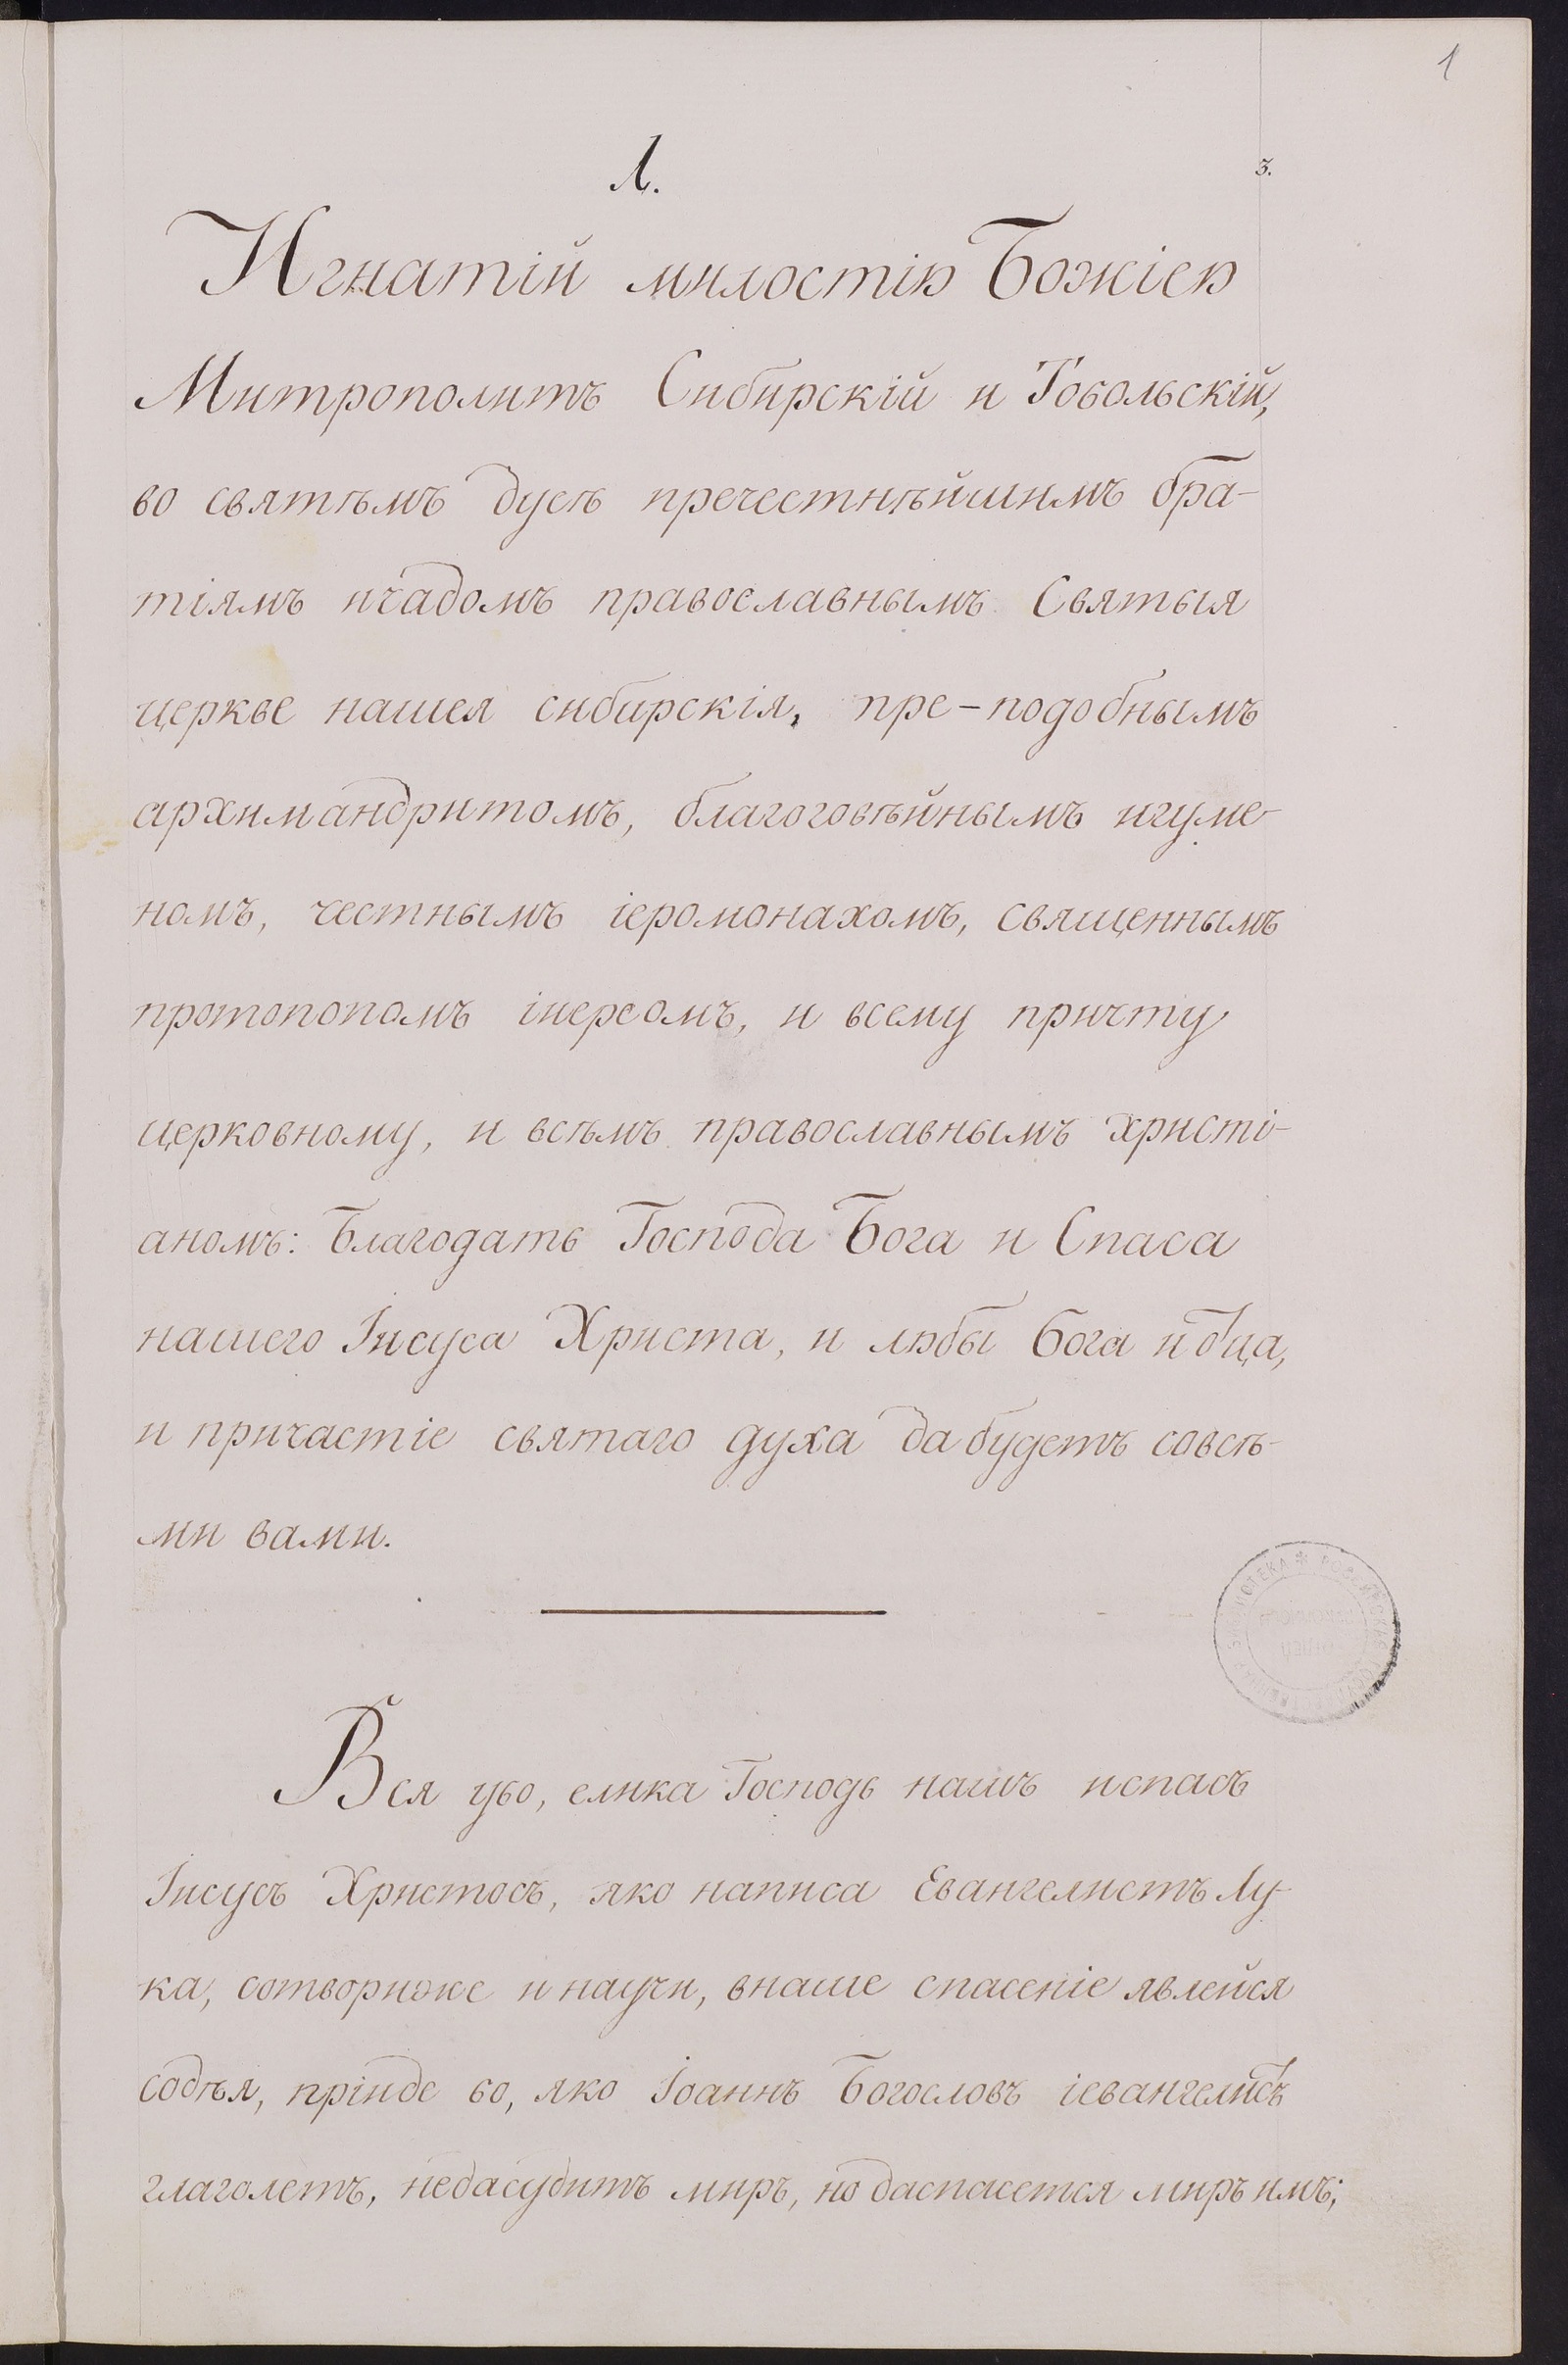 1
1.
3.
Игнатій милостію Божіею
Митрополитъ Сибирскій и Тобольскій,
во святѣмъ дусѣ пречестнѣйшимъ бра-
тіямъ ичадомъ православнымъ Святыя
церкве нашея сибирскія, пре-подобнымъ
архимандритомъ, благоговѣйнымъ игуме-
номъ, честнымъ іеромонахомъ, священнымъ
протопопомъ іиереомъ, и всему причту
церковному, и всѣмъ православнымъ христі-
аномъ: Благодать Господа Бога и Спаса
нашего Іисуса Христа, и любы Бога иоца,
и причастіе святаго духа да будетъ совсѣ-
ми вами.
Вся убо, елика Господь нашъ испасъ
Іисусъ Христосъ, яко написа Евангелистъ Лу-
ка, сотвориже и научи, внаше спасеніе явлейся
содѣя, пріиде бо, яко Іоаннъ Богословъ іевангелисъ
глаголетъ, недасудитъ миръ, но даспасется миръ имъ;